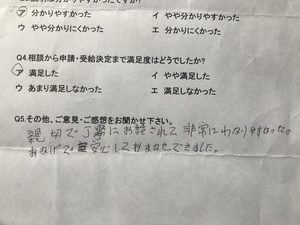 ア 分かりやすかった イ やや分かりやすかった
ウ やや分かりにくかった エ 分かりにくかった
Q4.相談から申請・受給決定まで満足度はどうでしたか?
ア 満足した イ やや満足した
ウ あまり満足しなかった エ 満足しなかった
Q5.その他、ご意見・ご感想をお聞かせ下さい。
親切で丁寧にお話されて非常にわかりやすかった。
おかげで安心しておまかせできました。